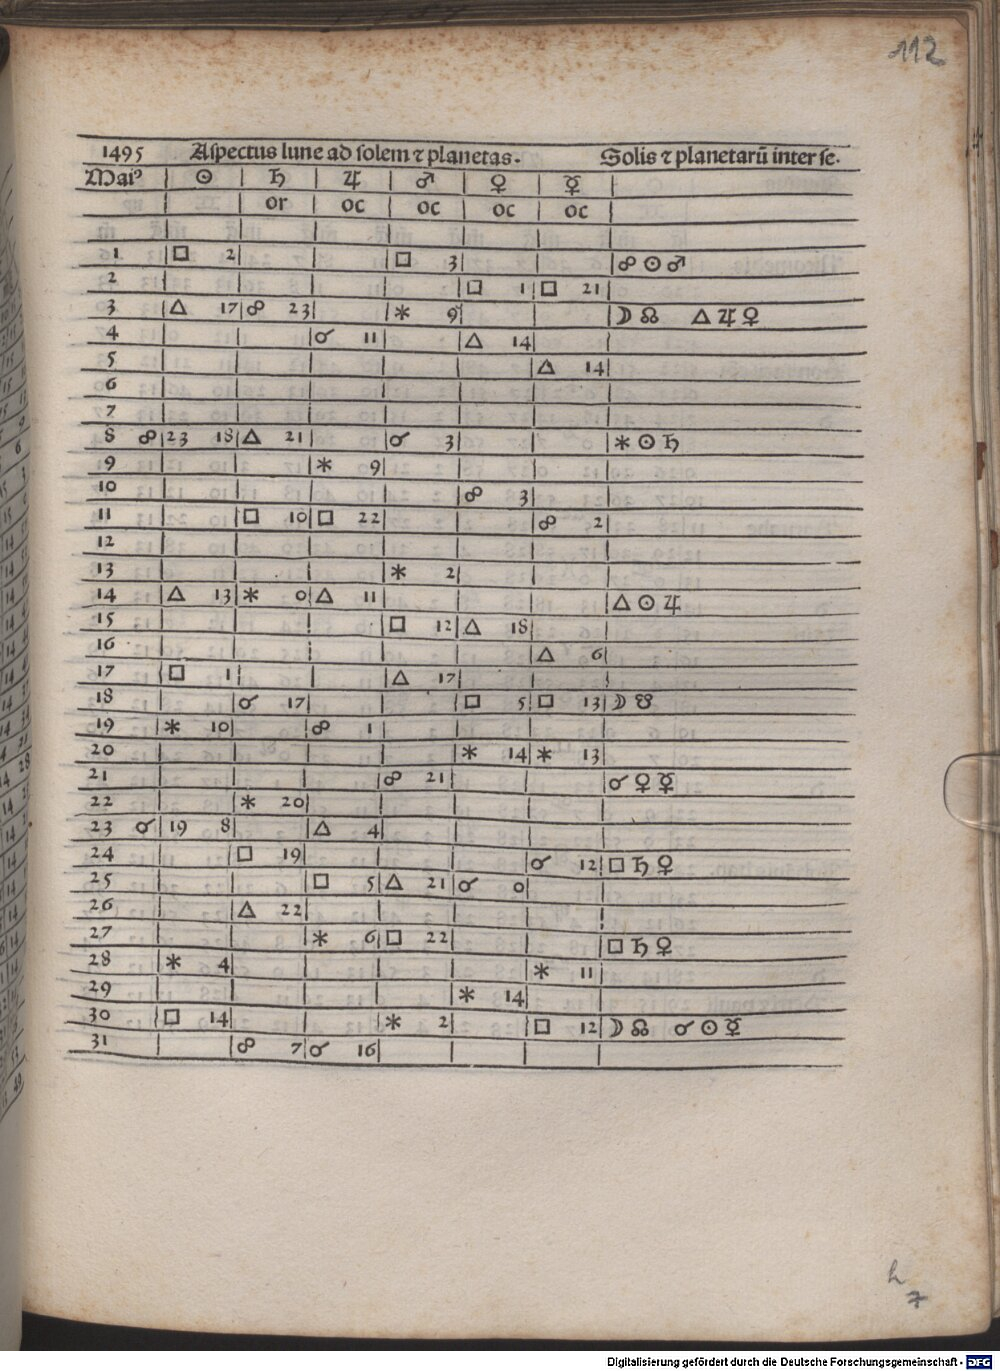 112
1495 Aſpectus lune ad ſolem ⁊ planetas. Solis ⁊ planetarū inter ſe.
Maiꝰ | ☉ | ♄ | ♃ | ♂ | ♀ | ☿ |
| | or | oc | oc | oc | oc |
1 | □ 2 | | | □ 3 | | | ☍ ☉ ♂
2 | | | | | □ 1 | □ 21 |
3 | △ 17 | ☍ 23 | | ⚹ 9 | | | ☽ ☊ △ ♃ ♀
4 | | | ☌ 11 | | △ 14 | |
5 | | | | | | △ 14 |
6 | | | | | | |
7 | | | | | | |
8 ☍ | 23 18 | △ 21 | | ☌ 3 | | | ⚹ ☉ ♄
9 | | | ⚹ 9 | | | |
10 | | | | | ☍ 3 | |
11 | | □ 10 | □ 22 | | | ☍ 2 |
12 | | | | | | |
13 | | | | ⚹ 2 | | |
14 | △ 13 | ⚹ 0 | △ 11 | | | | △ ☉ ♃
15 | | | | □ 12 | △ 18 | |
16 | | | | | | △ 6 |
17 | □ 1 | | | △ 17 | | |
18 | | ☌ 17 | | | □ 5 | □ 13 | ☽ ☋
19 | ⚹ 10 | | ☍ 1 | | | |
20 | | | | | ⚹ 14 | ⚹ 13 |
21 | | | | ☍ 21 | | | ☌ ♀ ☿
22 | | ⚹ 20 | | | | |
23 ☌ | 19 8 | | △ 4 | | | |
24 | | □ 19 | | | | ☌ 12 | □ ♄ ♀
25 | | | □ 5 | △ 21 | ☌ 0 | |
26 | | △ 22 | | | | |
27 | | | ⚹ 6 | □ 22 | | | □ ♄ ♀
28 | ⚹ 4 | | | | | ⚹ 11 |
29 | | | | | ⚹ 14 | |
30 | □ 14 | | | ⚹ 2 | | □ 12 | ☽ ☊ ☌ ☉ ☿
31 | | ☍ 7 | ☌ 16 | | | |
h
7
Digitalisierung gefördert durch die Deutsche Forschungsgemeinschaft - DFG